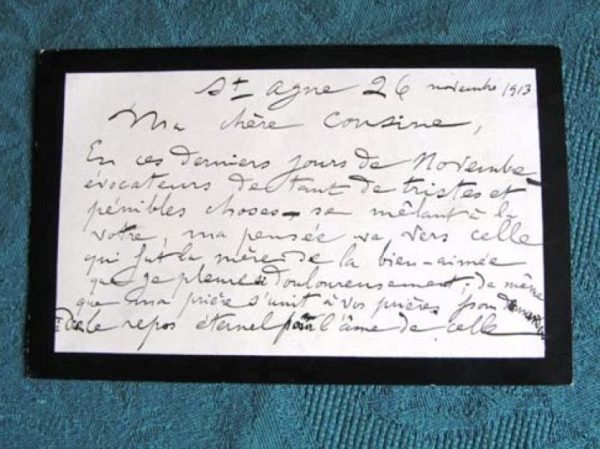 St Agne 26 novembre 1913
Ma chère Cousine,
En ces derniers jours de Novembre
évocateurs de tant de tristes et
pénibles choses – se mêlant à la
votre, ma pensée va vers celle
qui fut la mère de la bien-aimée
que je pleure si douloureusement; de même
que ma prière s'unit à vos prières pour
le repos éternel pour l'âme de celle